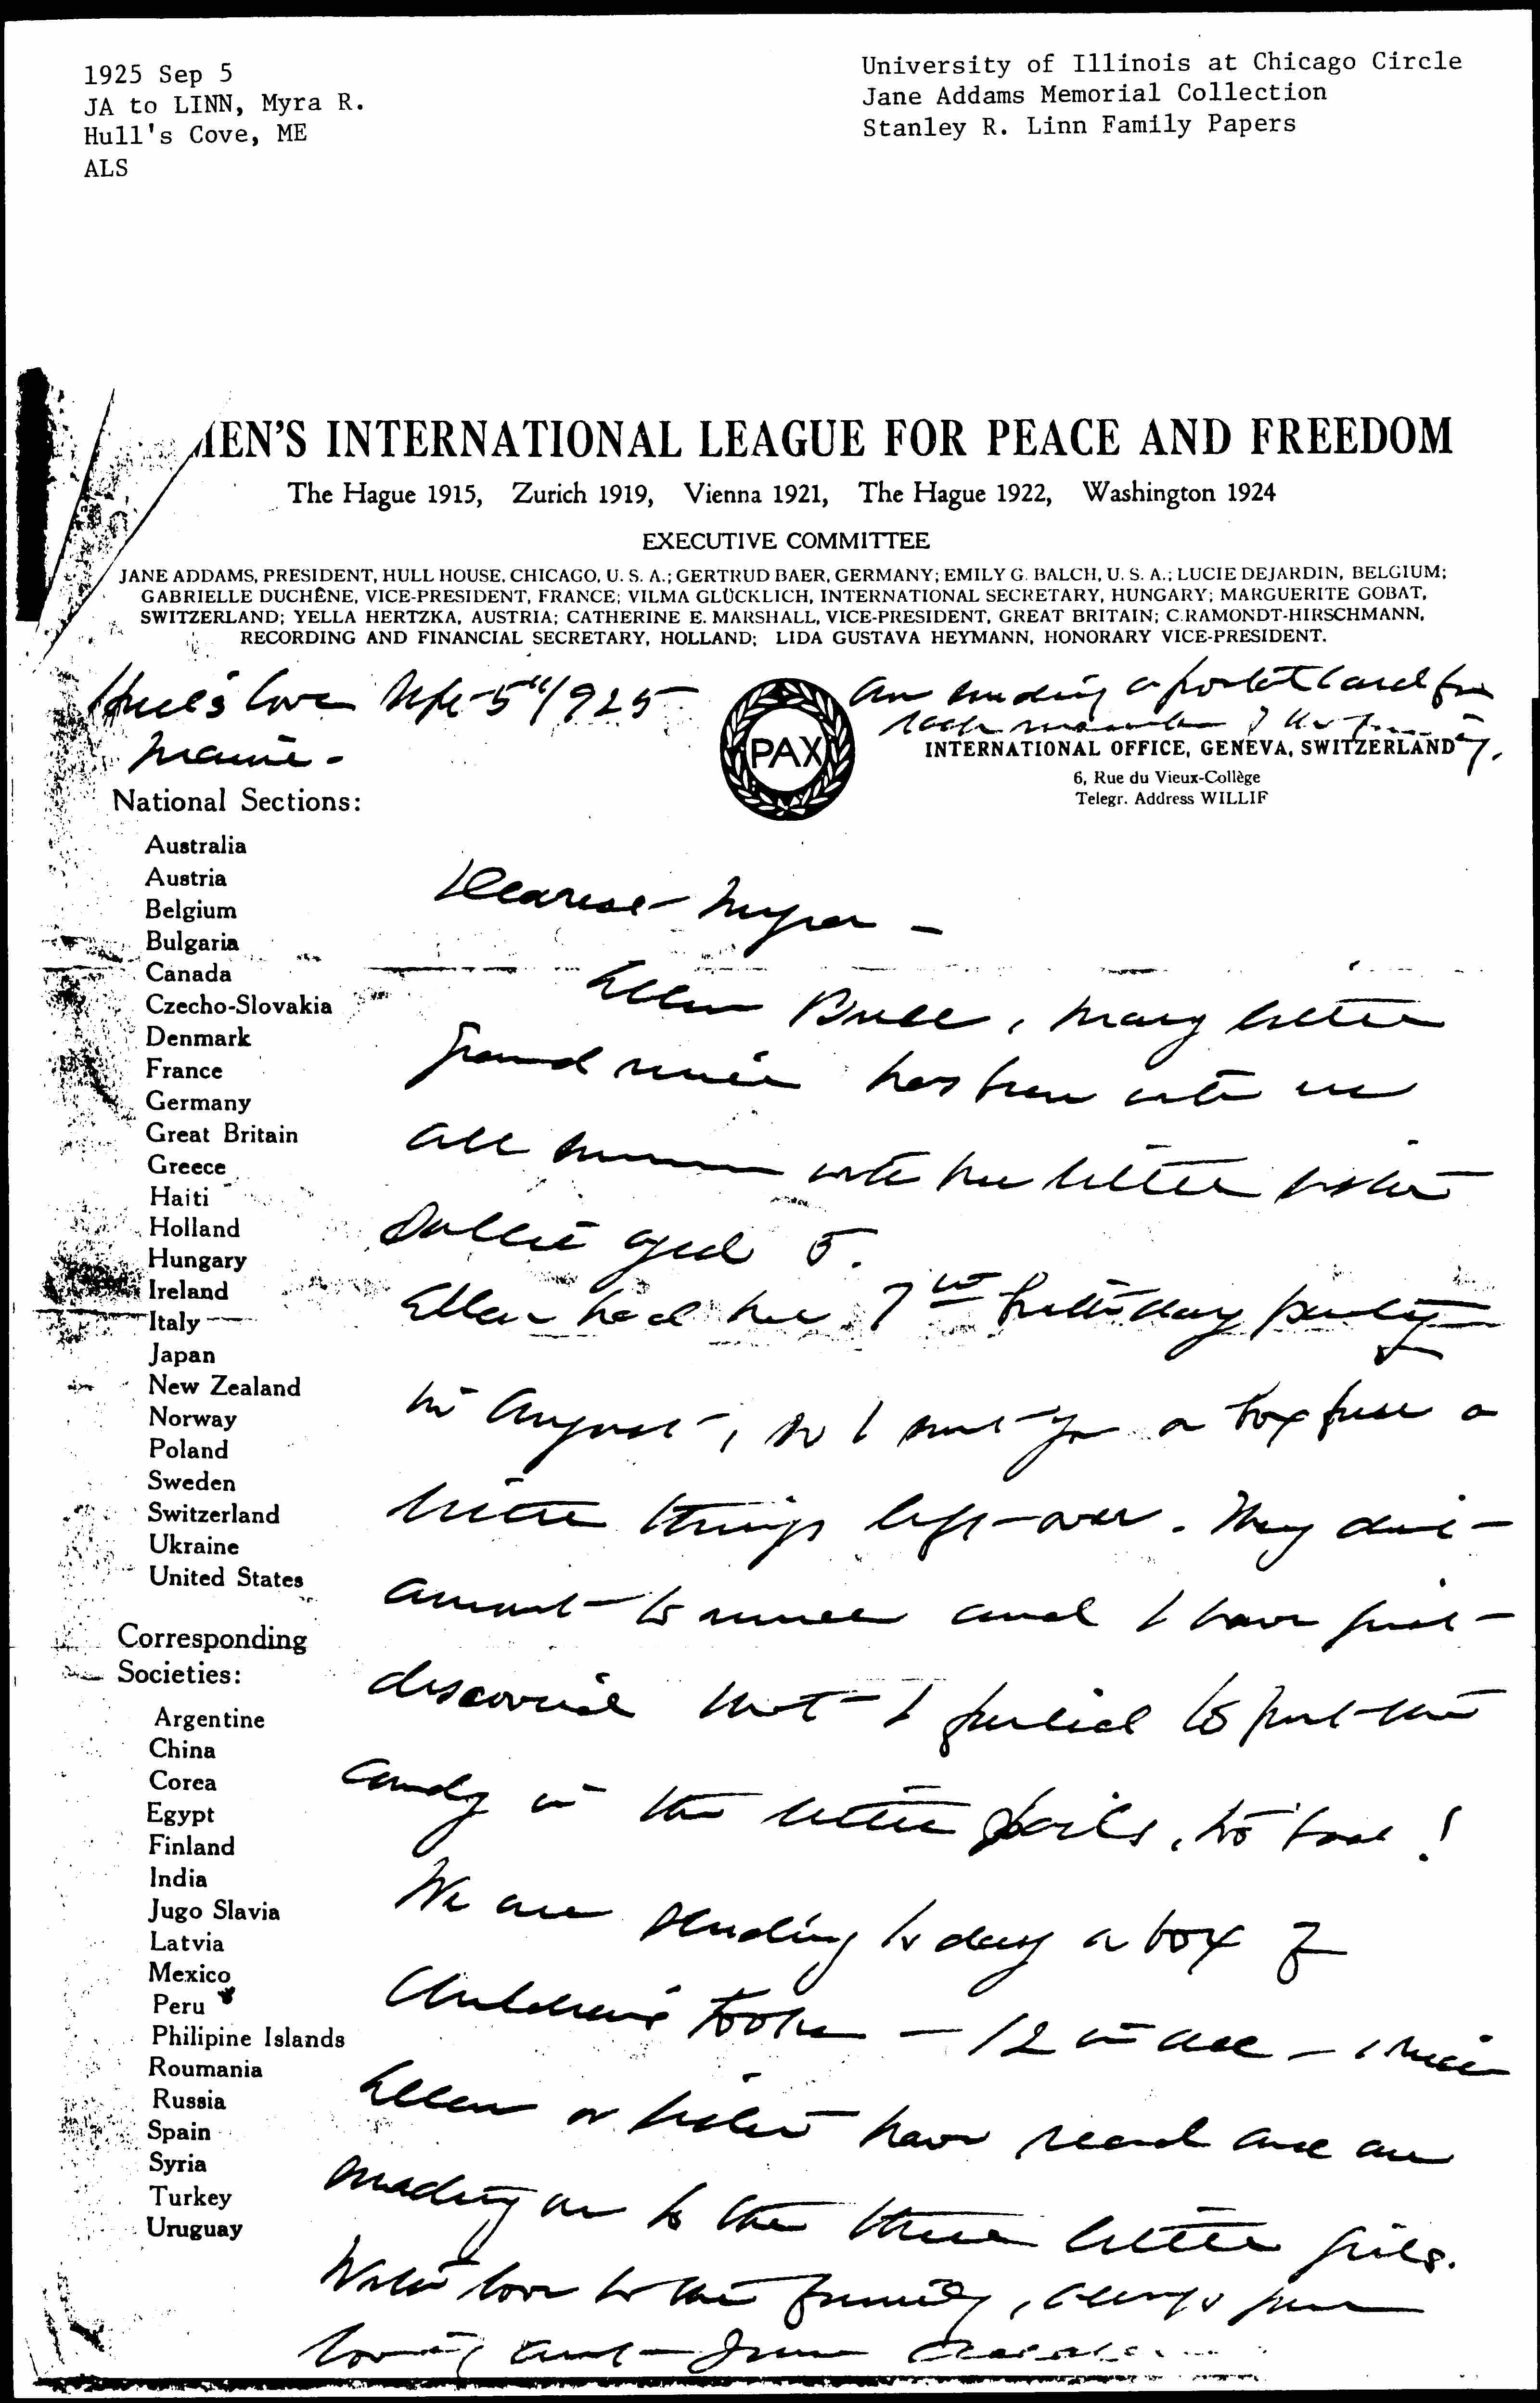 1925 Sep 5
JA to LINN, Myra R.
Hull's Cove, ME
ALS
University of Illinois at Chicago Circle
Jane Addams Memorial Collection
Stanley R. Linn Family Papers
MEN'S INTERNATIONAL LEAGUE FOR PEACE AND FREEDOM
The Hague 1915, Zurich 1919, Vienna 1921, The Hague 1922, Washington 1924
EXECUTIVE COMMITTEE
JANE ADDAMS, PRESIDENT, HULL HOUSE, CHICAGO, U. S. A.; GERTRUD BAER, GERMANY; EMILY G. BALCH, U. S. A.; LUCIE DEJARDIN, BELGIUM;
GABRIELLE DUCHÊNE, VICE-PRESIDENT, FRANCE; VILMA GLÜCKLICH, INTERNATIONAL SECRETARY, HUNGARY; MARGUERITE GOBAT,
SWITZERLAND; YELLA HERTZKA, AUSTRIA; CATHERINE E. MARSHALL, VICE-PRESIDENT, GREAT BRITAIN; C.RAMONDT-HIRSCHMANN,
RECORDING AND FINANCIAL SECRETARY, HOLLAND; LIDA GUSTAVA HEYMANN, HONORARY VICE-PRESIDENT.
Hull's Cove Sept 5" 1925
Maine -
am sending a postal card for
each member of the family.
PAX
INTERNATIONAL OFFICE, GENEVA, SWITZERLAND
6, Rue du Vieux-Collège
Telegr. Address WILLIF
National Sections:
Australia
Austria
Belgium
Bulgaria
Canada
Czecho-Slovakia
Denmark
France
Germany
Great Britain
Greece
Haiti
Holland
Hungary
Ireland
Italy
Japan
New Zealand
Norway
Poland
Sweden
Switzerland
Ukraine
United States
Corresponding
Societies:
Argentine
China
Corea
Egypt
Finland
India
Jugo Slavia
Latvia
Mexico
Peru
Philipine Islands
Roumania
Russia
Spain
Syria
Turkey
Uruguay
Dearest Myra -
Ellen Bull, Mary's little
grand niece has been with us
all summer with her little sister
Sallie aged 5.
Ellen had her 7th birthday party
in August, so I sent you a box full a
little things left-over. They didn't
amount to much and I have just
discovered that I failed to put the
candy in the little pails, too bad!
We are sending to day a box of
Children's books - 12 in all - which
Ellen or sister have read and are
sending on to the three little girls.
With love to the family, always your
loving aunt - Jane Addams